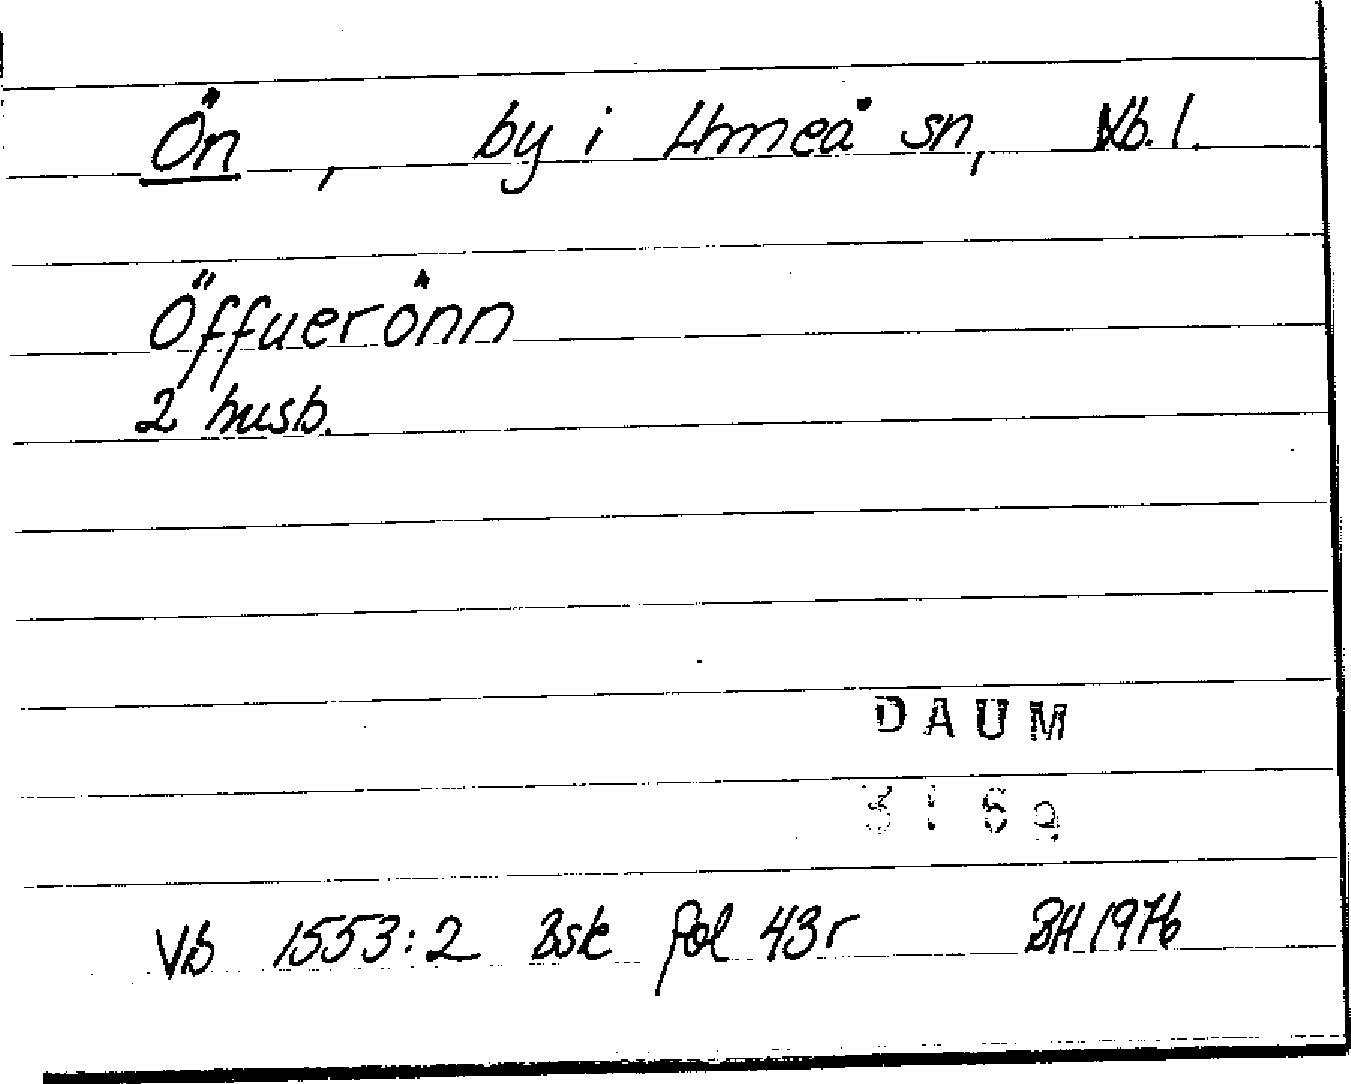 Ön, by i Umeå sn, Vb. l.
Öffuerönn
2 husb.
DAUM
3169
Vb 1553:2 Bsk fol 43r BH 1976